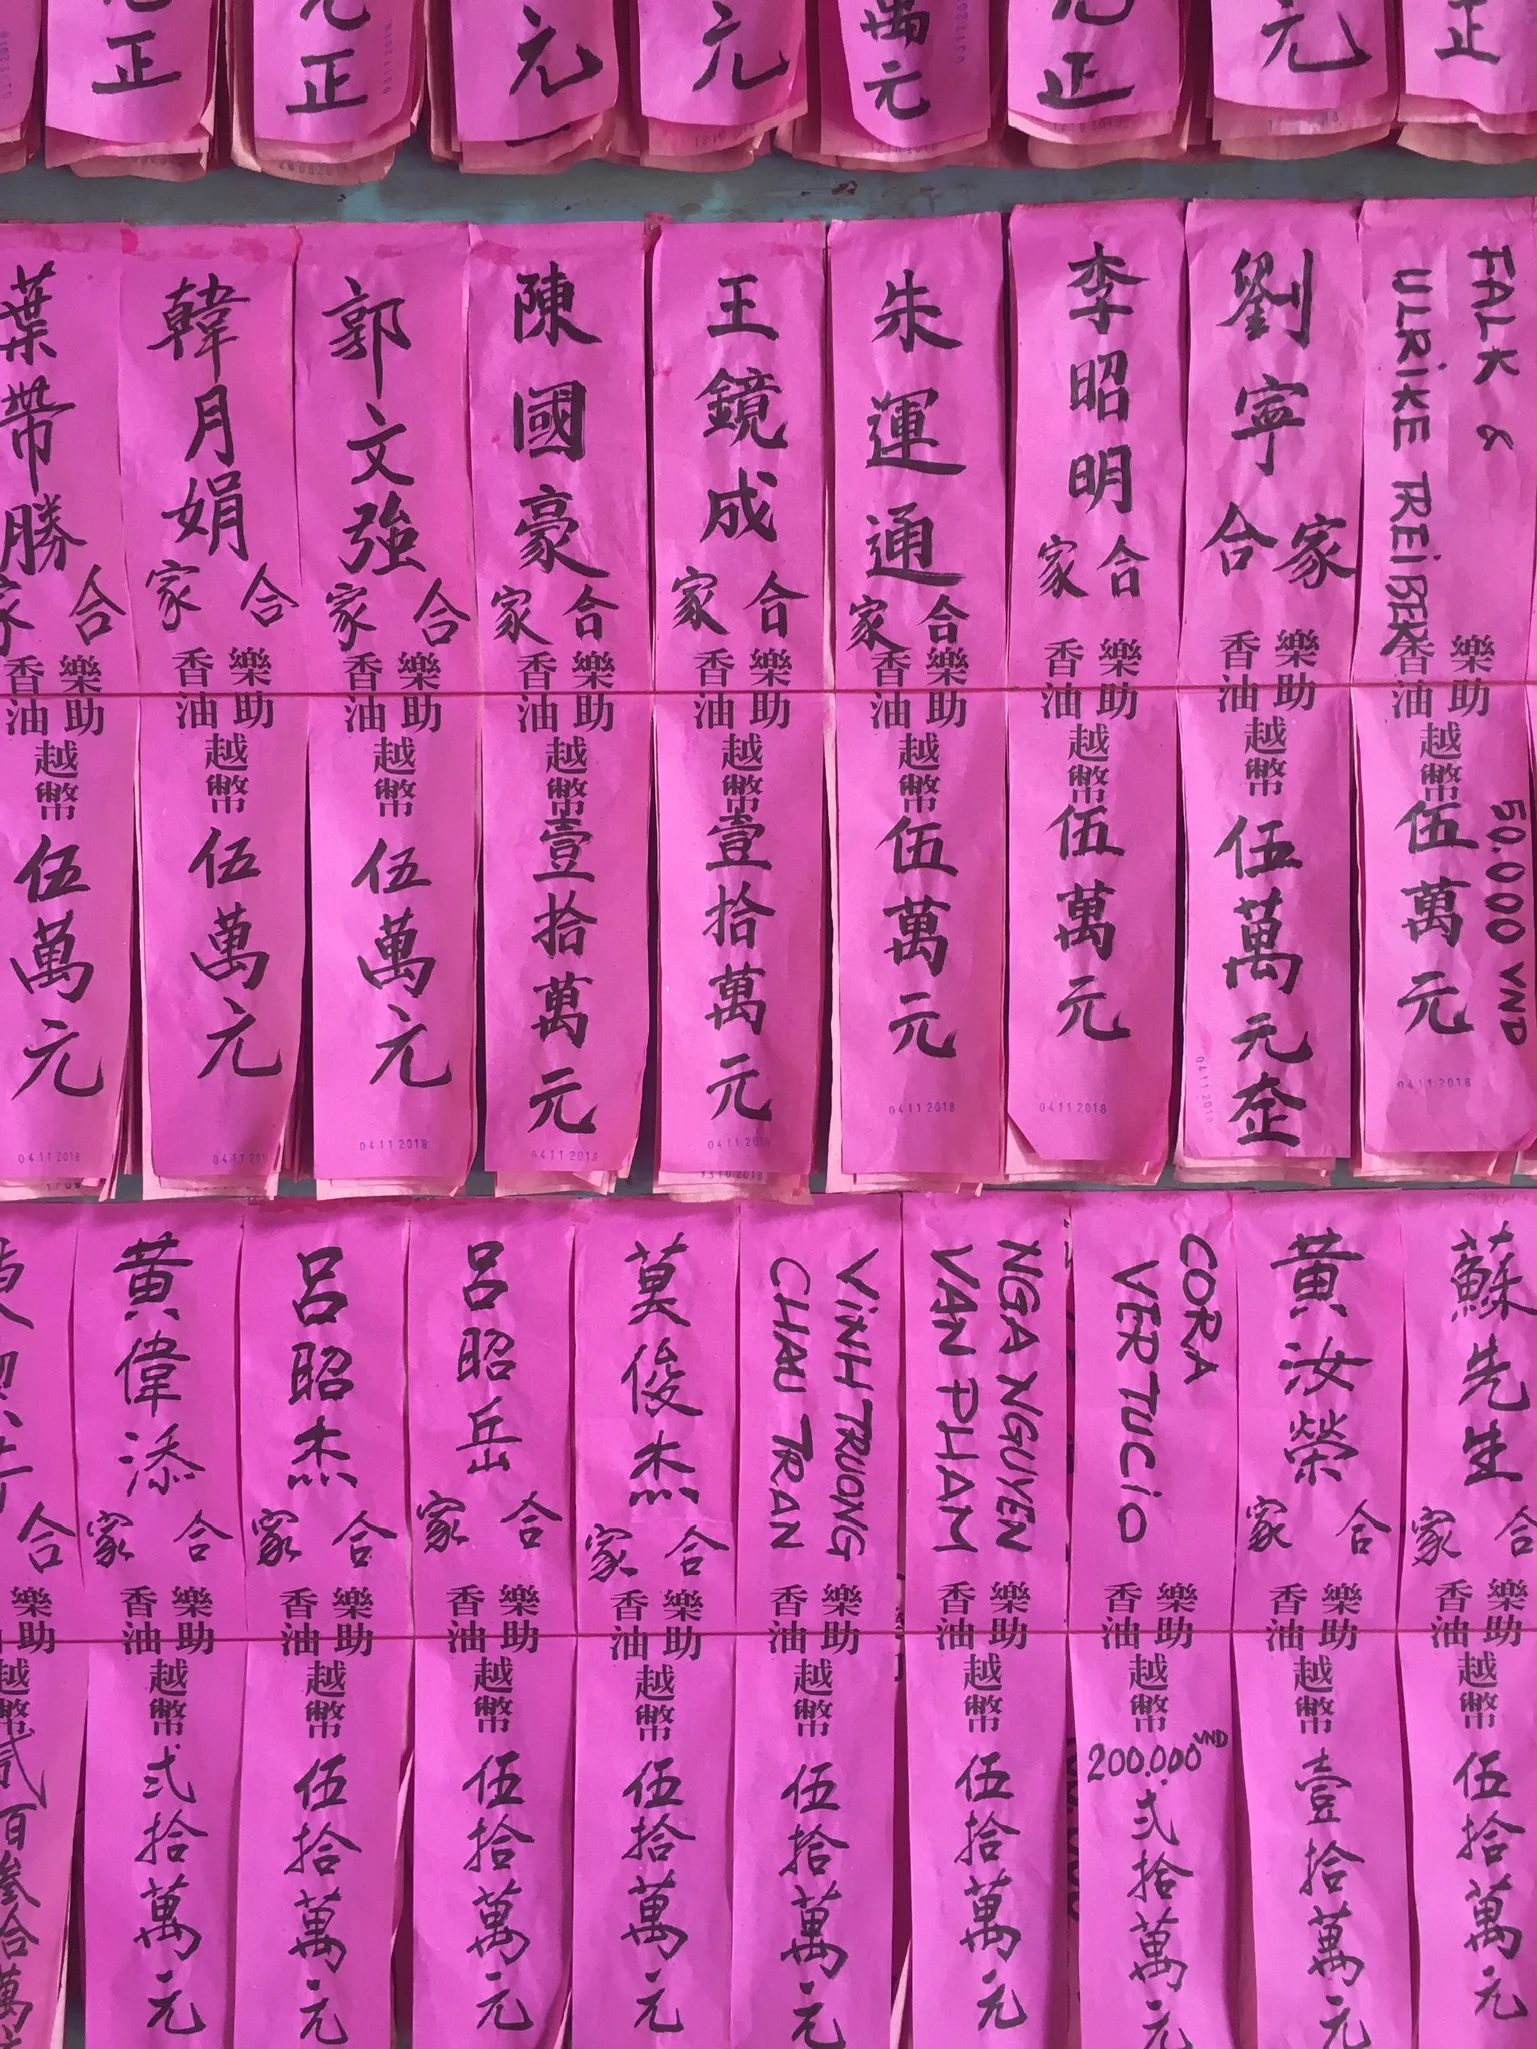 正
元正
元
元
萬元
元正
元
正
葉帶勝
家合
樂助香油
越幣
伍萬元
04112018
韓月娟
家合
樂助香油
越幣
伍萬元
郭文強
家合
樂助香油
越幣
伍萬元
04112018
陳國豪
家合
樂助香油
越幣
壹拾萬元
04112018
王鏡成
家合
樂助香油
越幣
壹拾萬元
04112018
朱運通
家合
樂助香油
越幣
伍萬元
04112018
李昭明
家合
樂助香油
越幣
伍萬元
04112018
劉寧
合家
樂助香油
越幣
伍萬元正
04112018
FALK &
ULRIKE TREIBER
樂助香油
越幣
伍萬元
50.000 VND
04112018
合
樂助
越幣
貳百叁合萬
黄偉添
家合
樂助香油
越幣
弍拾萬元
呂昭杰
家合
樂助香油
越幣
伍拾萬元
呂昭岳
家合
樂助香油
越幣
伍拾萬元
莫俊杰
家合
樂助香油
越幣
伍拾萬元
VINH TRUONG
CHAU TRAN
樂助香油
越幣
伍拾萬元
NGA NGUYEN
VAN PHAM
樂助香油
越幣
伍拾萬元
CORA
VERTUCIO
樂助香油
越幣
200,000 VND
弍拾萬元
黄汝榮
家合
樂助香油
越幣
壹拾萬元
蘇先生
家合
樂助香油
越幣
伍拾萬元